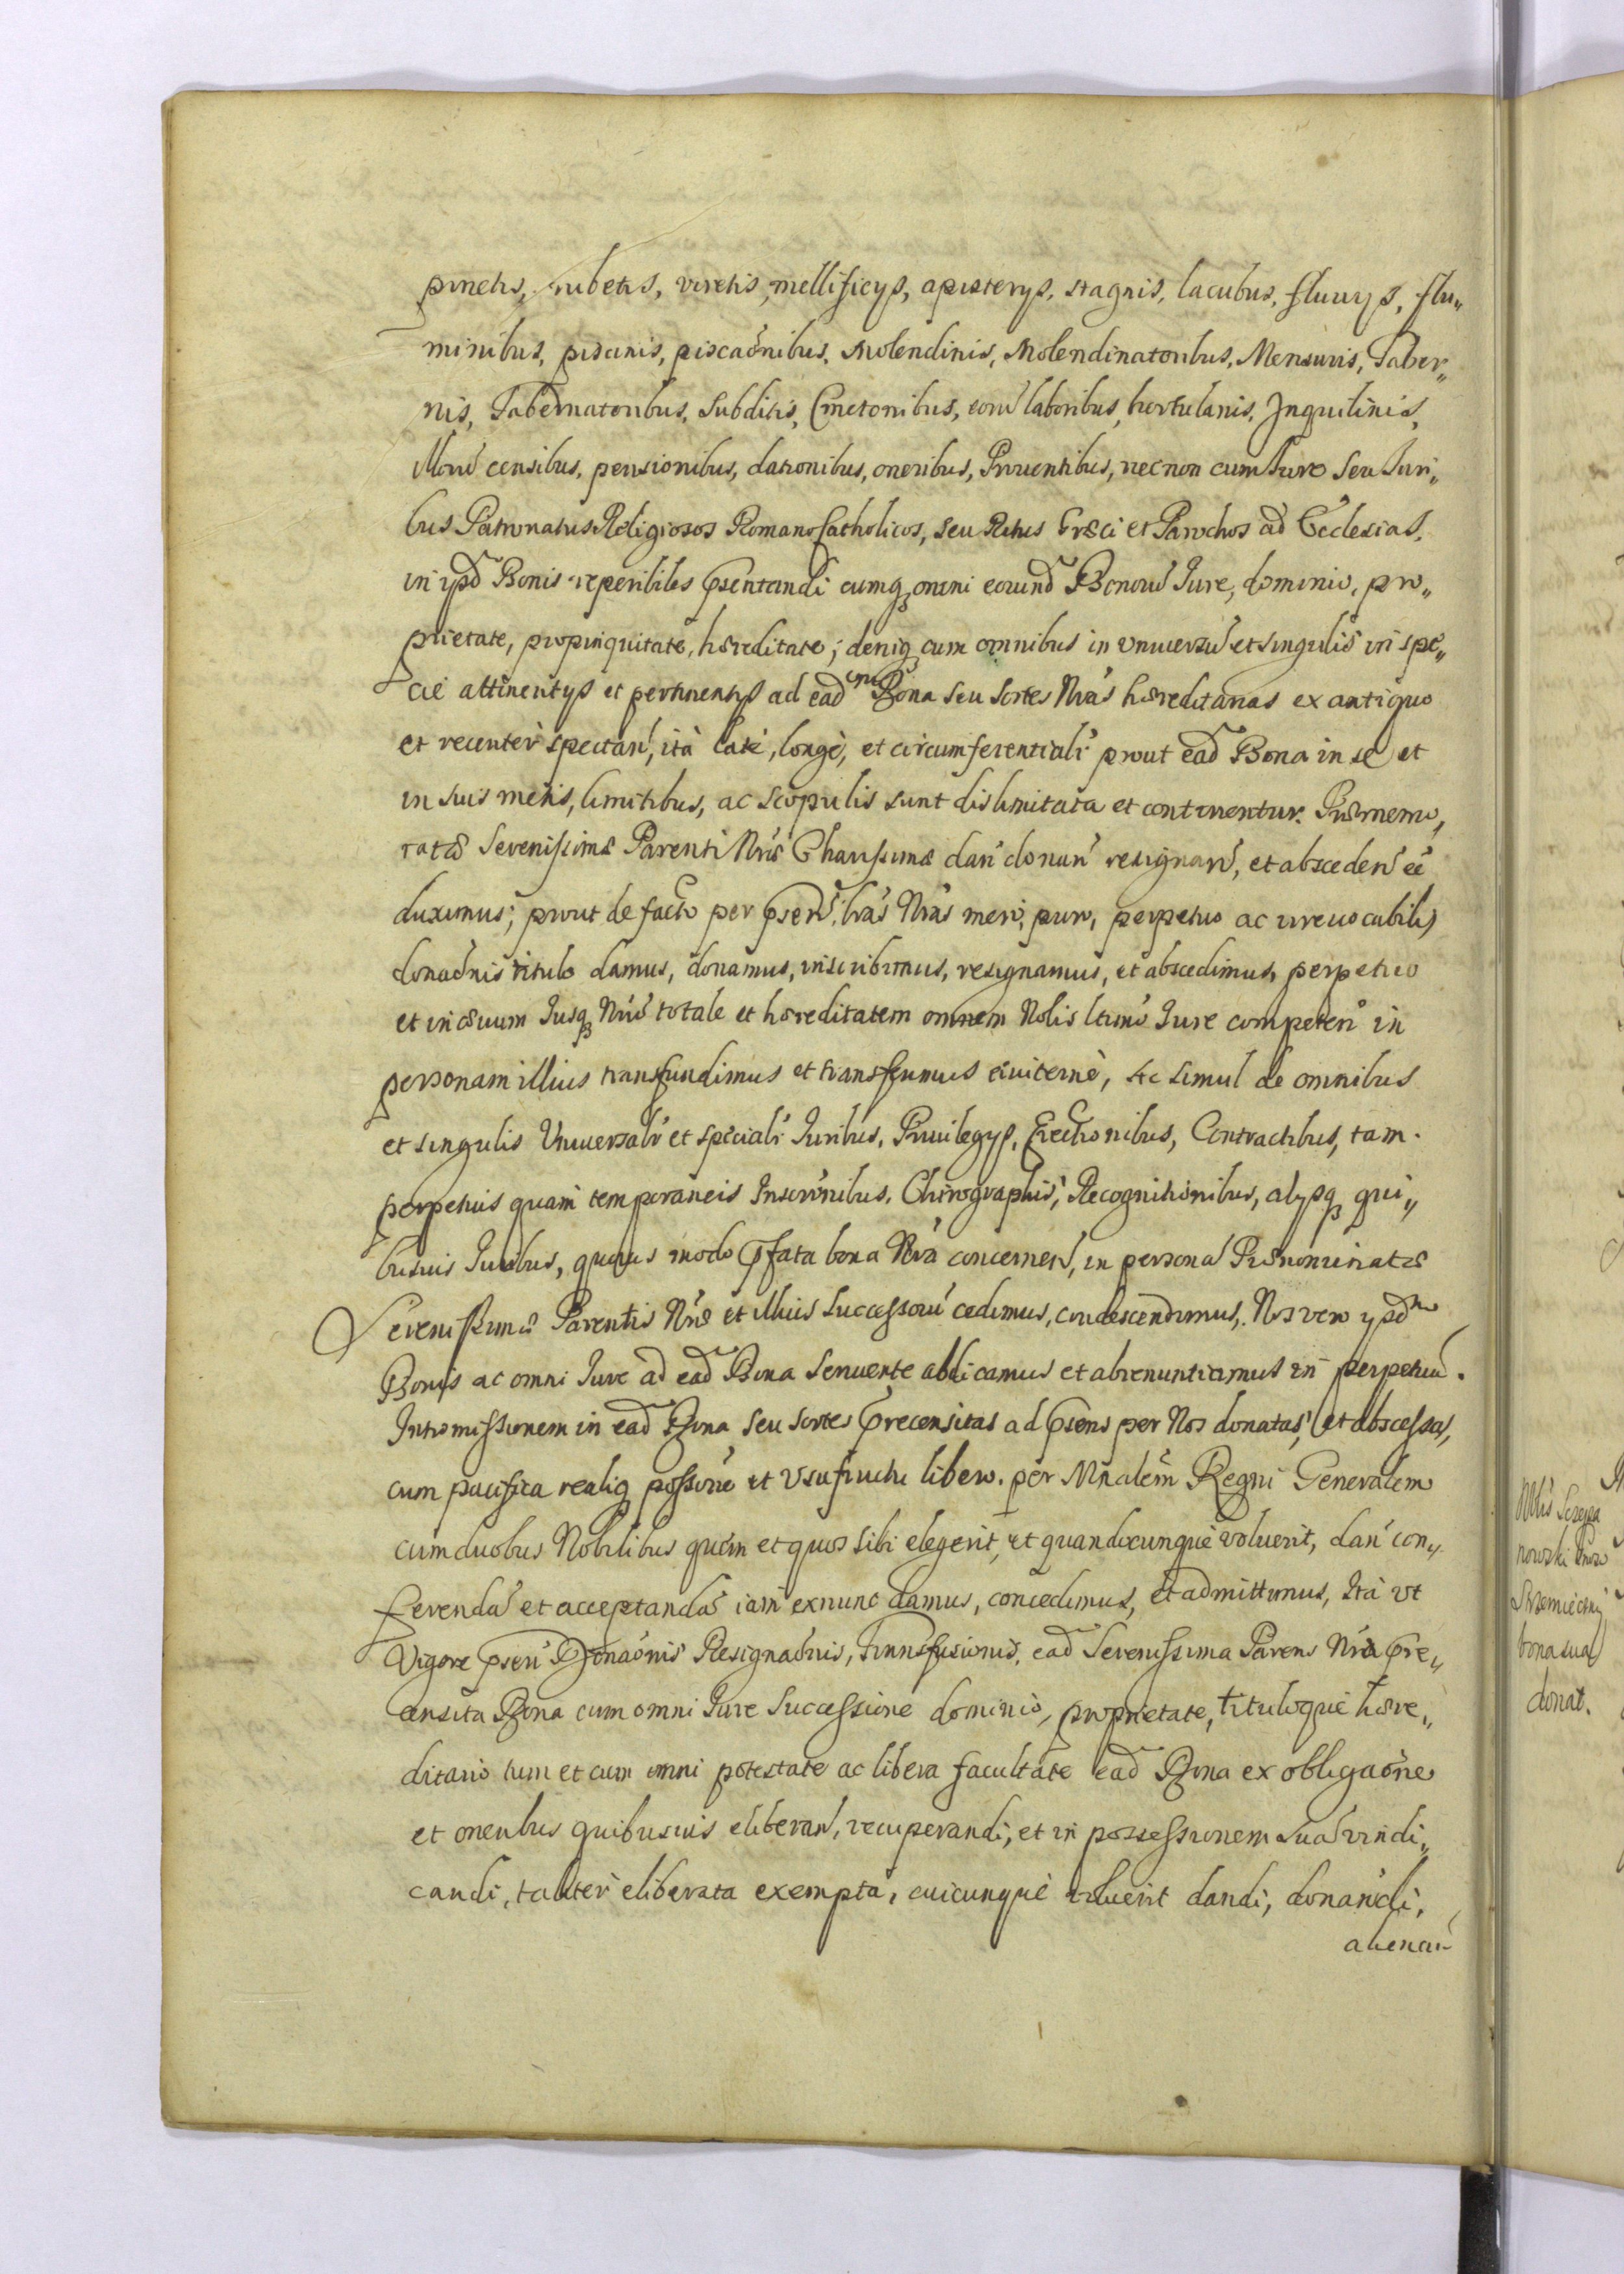 pinetis, rubetis, viretis, mellificijs, apisterijs, stagnis, lacubus, fluuijs, flu„
minibus, piscinis, piscaõnibus, Molendinis, Molendinatoribus, Mensuris, Taber„
nis, Tabernatoribus, Subditis, Cmetonibus, eorũ laboribus, hortulanis, Inquilinis,
illorũ censibus, pensionibus, dationibus, oneribus, Prouentibus, necnon cum Jure seu Juri„
bus Patronatus Religiosos Romano Catholicos, seu Ritus Græci et Parochos ad Ecclesias,
in ijsd̃ Bonis reperibiles p̃sentandi cumq̃ omni eorund̃ Bonorũ Jure, dominio, pro„
prietate, propinquitate, hæreditate; deniq̃ cum omnibus in vniuersũ et singulis in spe„
cie attinentijs et pertinentijs ad ead̃m Bona seu Sortes Nrãs hæreditarias ex antiquo
et recenter spectañ, ità latè, longè, et circumferentialr̃ prout ead̃ Bona in se et
in suis metis, limitibus, ac scopulis sunt dislimitata et continentur. Præmemo„
ratæ Serenissimæ Parenti Nræ Charissimæ dañ donañ resignañ, et absceden̄ eē
duximus; prout de facto per p̃sen̄ lrãs Nrãs meri, puro, perpetuo ac irreuocabilis
donaõnis titulo damus, donamus, inscribimus, resignamus, et abscedimus, perpetuo
et in æuum Jusq̃ Nrũ totale et hæreditatem omnem Nobis ltimo Jure competen̄ in
personam illius transfundimus et transferimus æuiternè, Ac simul de omnibus
et singulis Vniuersalr̃ et specialr̃ Juribus, Priuilegijs, Erectionibus, Contractibus, tam
perpetuis quam temporaneis Inscrõnibus, Chirographis, Recognitionibus, alijsq̃ qui„
busuis Juribus, quouis modo p̃fata bona Nrã concernen̄, in personã Prænominatæ
Serenissimæ Parentis Nræ et illius Successorũ cedimus, condescendimus, Nos vero ijsd̃m
Bonis ac omni Jure ad ead̃ Bona Seruiente abdicamus et abrenuntiamus in perpetuũ.
Intromissionem in ead̃ Bona seu Sortes p̃recensitas ad p̃sens per Nos donatas, et abscessas,
cum pacifica realiq̃ possõne et Vsufructu libero per Mñalem Regni Generalem
cum duobus Nobilibus quem et quos sibi elegerit, et quandocunque voluerit, dañ con„
ferendã et acceptandã iam exnunc damus, concedimus, et admittimus, Ità vt
Vigore p̃sen̄ Donaõnis Resignaõnis, Transfusionis, ead̃ Serenissima Parens Nrã p̃re„
censita Bona cum omni Jure Successione dominio, proprietate, tituloque hære„
ditario tum et cum omni potestate ac libera facultate ead̃ Bona ex obligaõne
et oneribus quibusuis eliberañ, recuperandi, et in possessionem suã vindi„
candi, taliter eliberata exempta, cuicunque voluerit dandi, donandi,
alienañ
bona sua
donat.